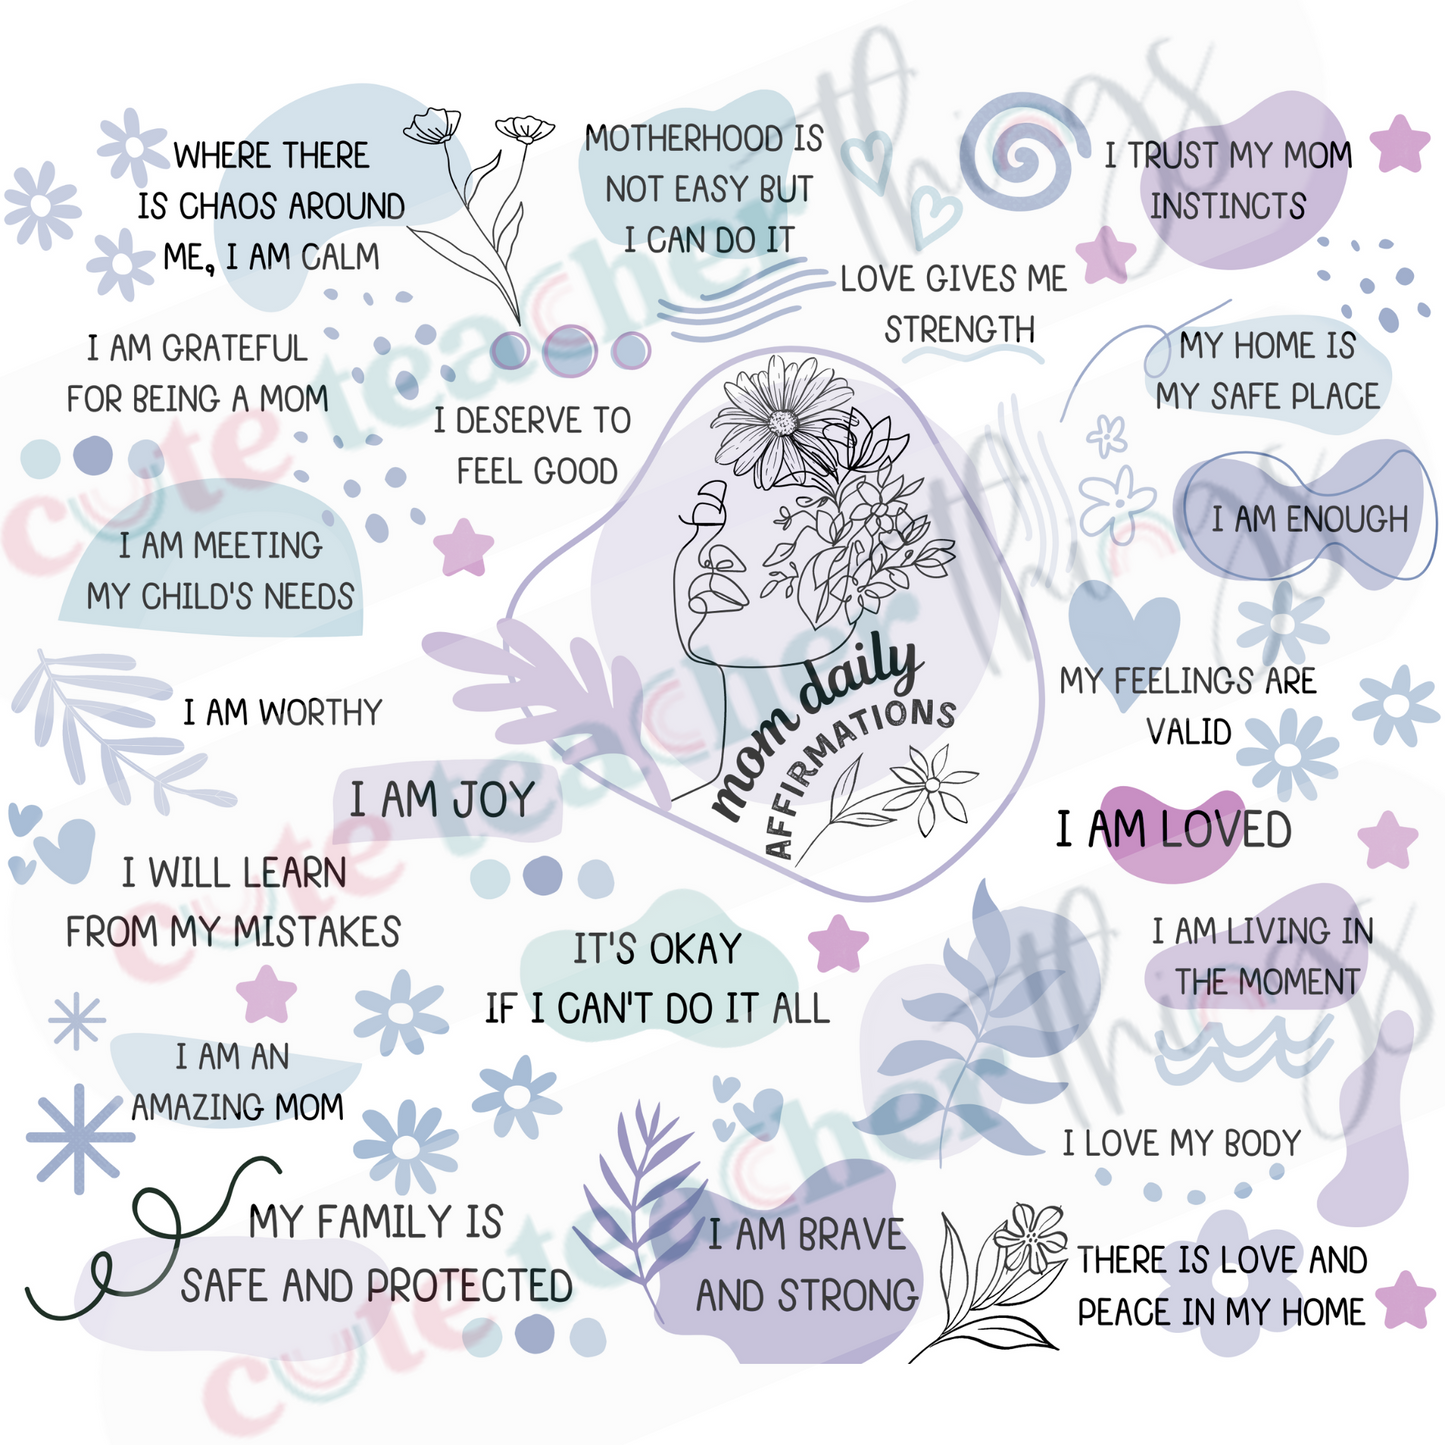 WHERE THERE
IS CHAOS AROUND
ME, I AM CALM
MOTHERHOOD IS
NOT EASY BUT
I CAN DO IT
I TRUST MY MOM
INSTINCTS
LOVE GIVES ME
STRENGTH
I AM GRATEFUL
FOR BEING A MOM
I DESERVE TO
FEEL GOOD
MY HOME IS
MY SAFE PLACE
I AM ENOUGH
I AM MEETING
MY CHILD'S NEEDS
MY FEELINGS ARE
VALID
I AM WORTHY
mom daily
AFFIRMATIONS
I AM JOY
I AM LOVED
I WILL LEARN
FROM MY MISTAKES
IT'S OKAY
IF I CAN'T DO IT ALL
I AM LIVING IN
THE MOMENT
I AM AN
AMAZING MOM
I LOVE MY BODY
MY FAMILY IS
SAFE AND PROTECTED
I AM BRAVE
AND STRONG
THERE IS LOVE AND
PEACE IN MY HOME
cute teacher things
cute teacher things
cute teacher things